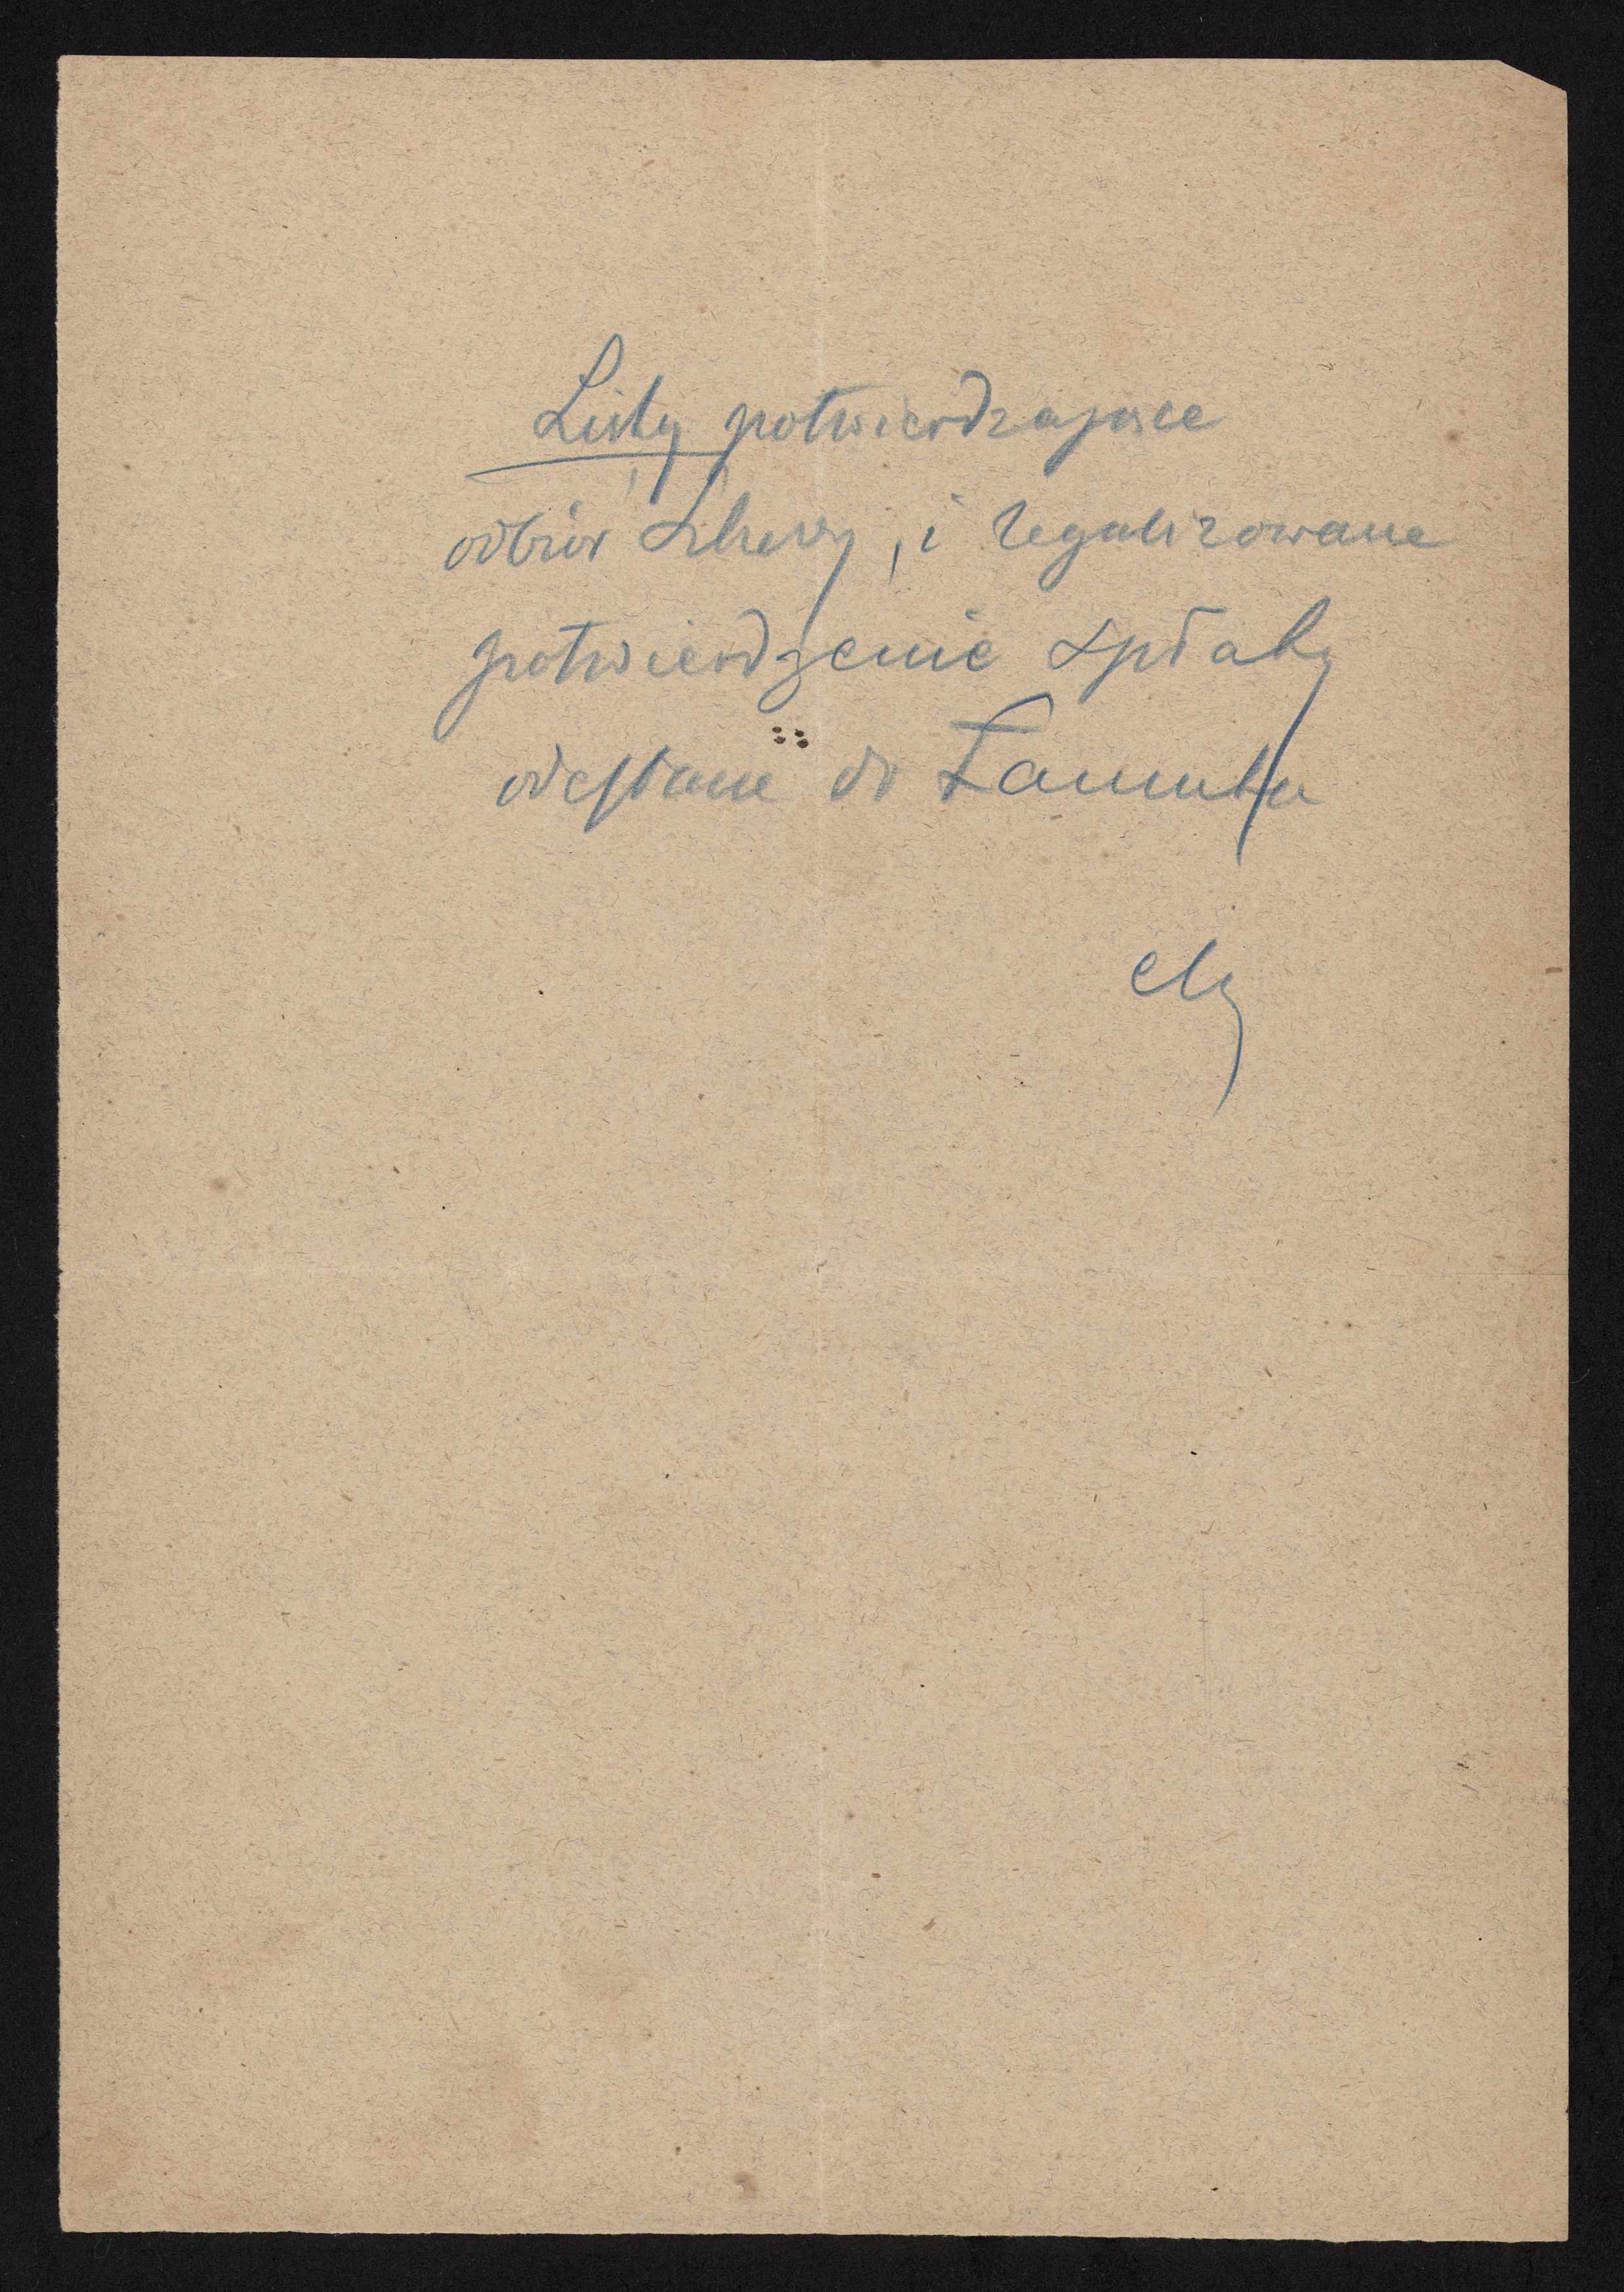 Listy potwierdzające
odbiór, i legalizowane
potwierdzenie spłaty
odesłane do Łańcuta